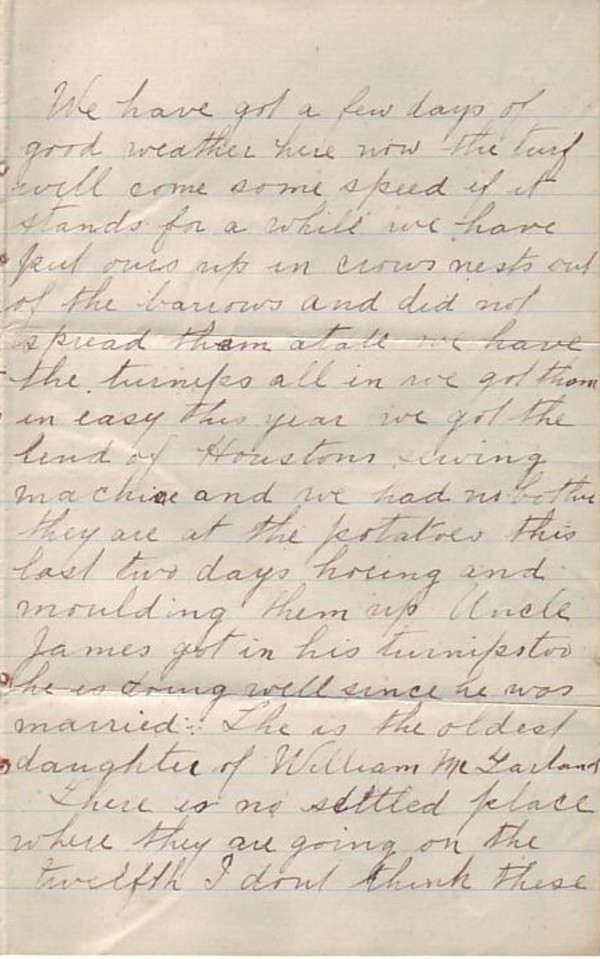 We have got a few days of
good weather here now the turf
will come some speed if it
stands for a while we have
put ours up in crows nests out
of the barrows and did not
spread them atall we have
the turnips all in we got them
in easy this year we got the
lend of Houstons sewing
machine and we had no bother
they are at the potatoes this
last two days hoeing and
moulding them up Uncle
James got in his turnips too
he is doing well since he was
married. She is the oldest
daughter of William Mc Garland
There is no settled place
where they are going on the
twelfth I dont think these